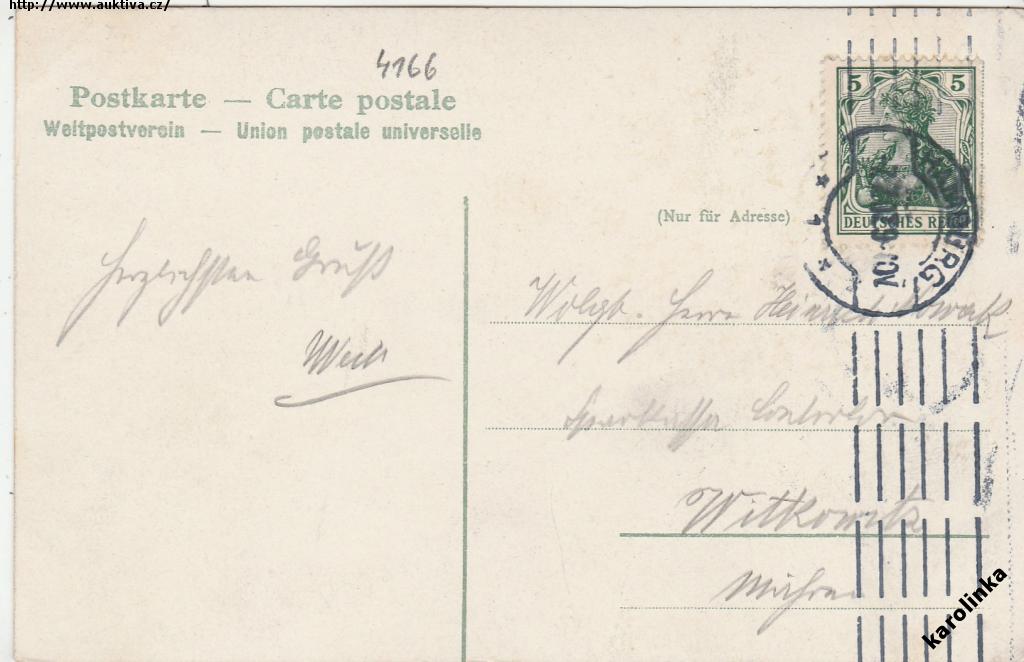 http://www.auktiva.cz/
4166
Postkarte — Carte postale
Weltpostverein — Union postale universelle
5 5
DEUTSCHES REICH
HAMBURG
(Nur für Adresse)
Herzlichsten Gruß
Wolgb. Herrn Heinrich Nowak
Sparkassa
Witkowitz
Mähren
karolinka